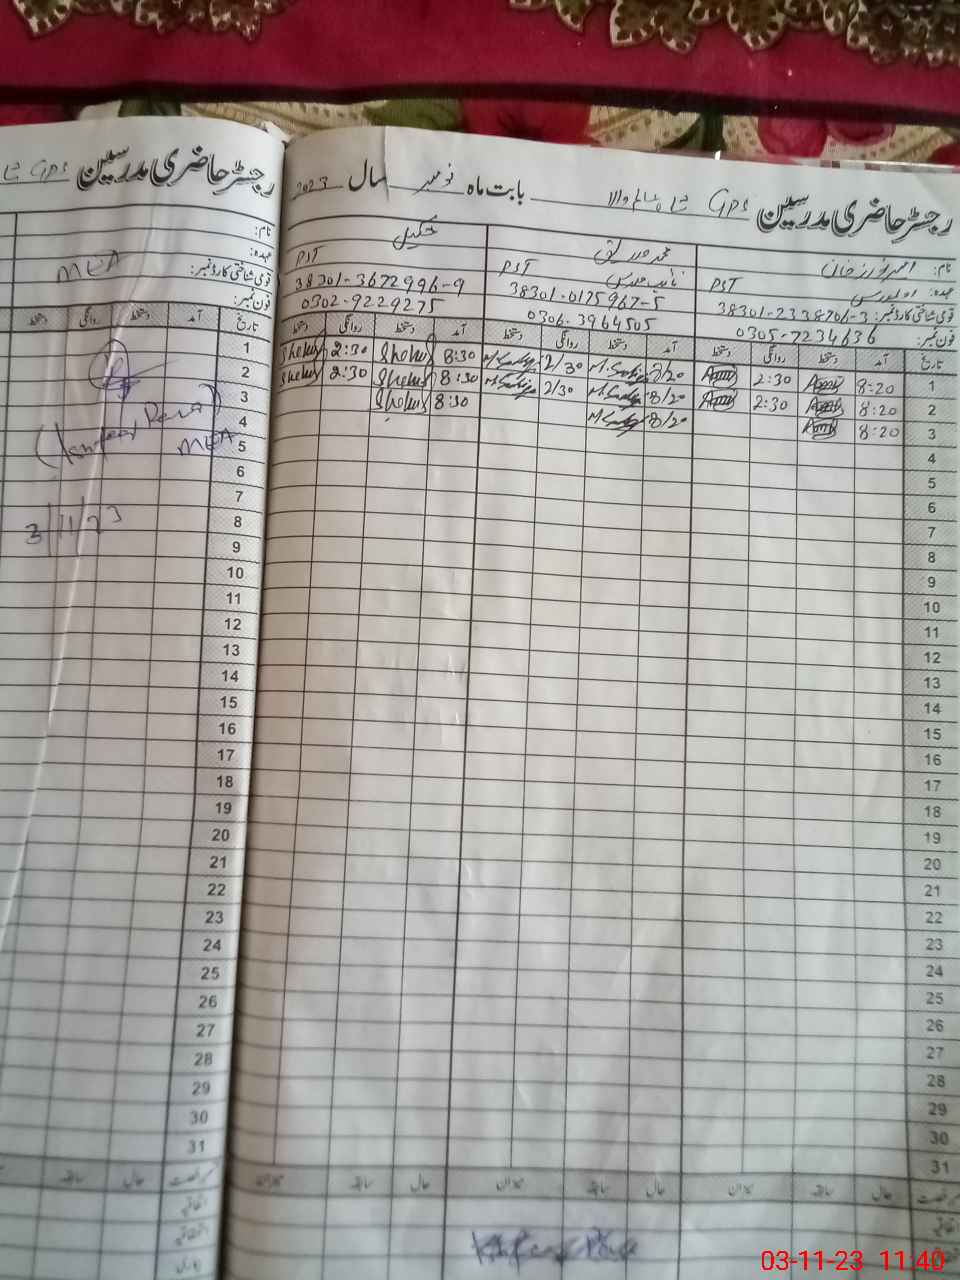 رجسٹر حاضری مدرسین GPS
بابت ماہ نومبر سال 2023
رجسٹر حاضری مدرسین GPS
نام:
عہدہ:
قومی شناختی کارڈ نمبر:
فون نمبر:
MEA
تاریخ آمد دستخط روانگی دستخط
(Kamfeer Raza)
MEA
3/11/23
نام: امیر نورز خان
عہدہ: اول مدرس PST
قومی شناختی کارڈ نمبر: 38301-2338701-3
فون نمبر: 0305-7234636
محمد صدیق
نائب مدرس PST
38301-0175967-5
0306-3964505
شکیل
PST
38301-3672996-9
0302-9229275
تاریخ آمد دستخط روانگی دستخط آمد دستخط روانگی دستخط آمد دستخط روانگی دستخط
1 8:20 2:30 8/20 M. Sadiq 2/30 M. Sadiq 8:30 Shekeel 2:30 Shekeel
2 8:20 2:30 8/20 M. Sadiq 2/30 M. Sadiq 8:30 Shekeel 2:30 Shekeel
3 8:20 8/20 M. Sadiq 8:30 Shekeel
4
5
6
7
8
9
10
11
12
13
14
15
16
17
18
19
20
21
22
23
24
25
26
27
28
29
30
31
حال سابقہ میزان حال سابقہ میزان حال سابقہ
اتفاقیہ
1
2
3
4
5
6
7
8
9
10
11
12
13
14
15
16
17
18
19
20
21
22
23
24
25
26
27
28
29
30
31
حال سابقہ
اتفاقیہ
03-11-23 11:40